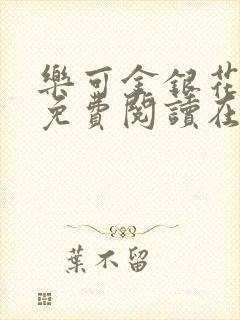 樂可金銀花
免費閱讀在
葉不留